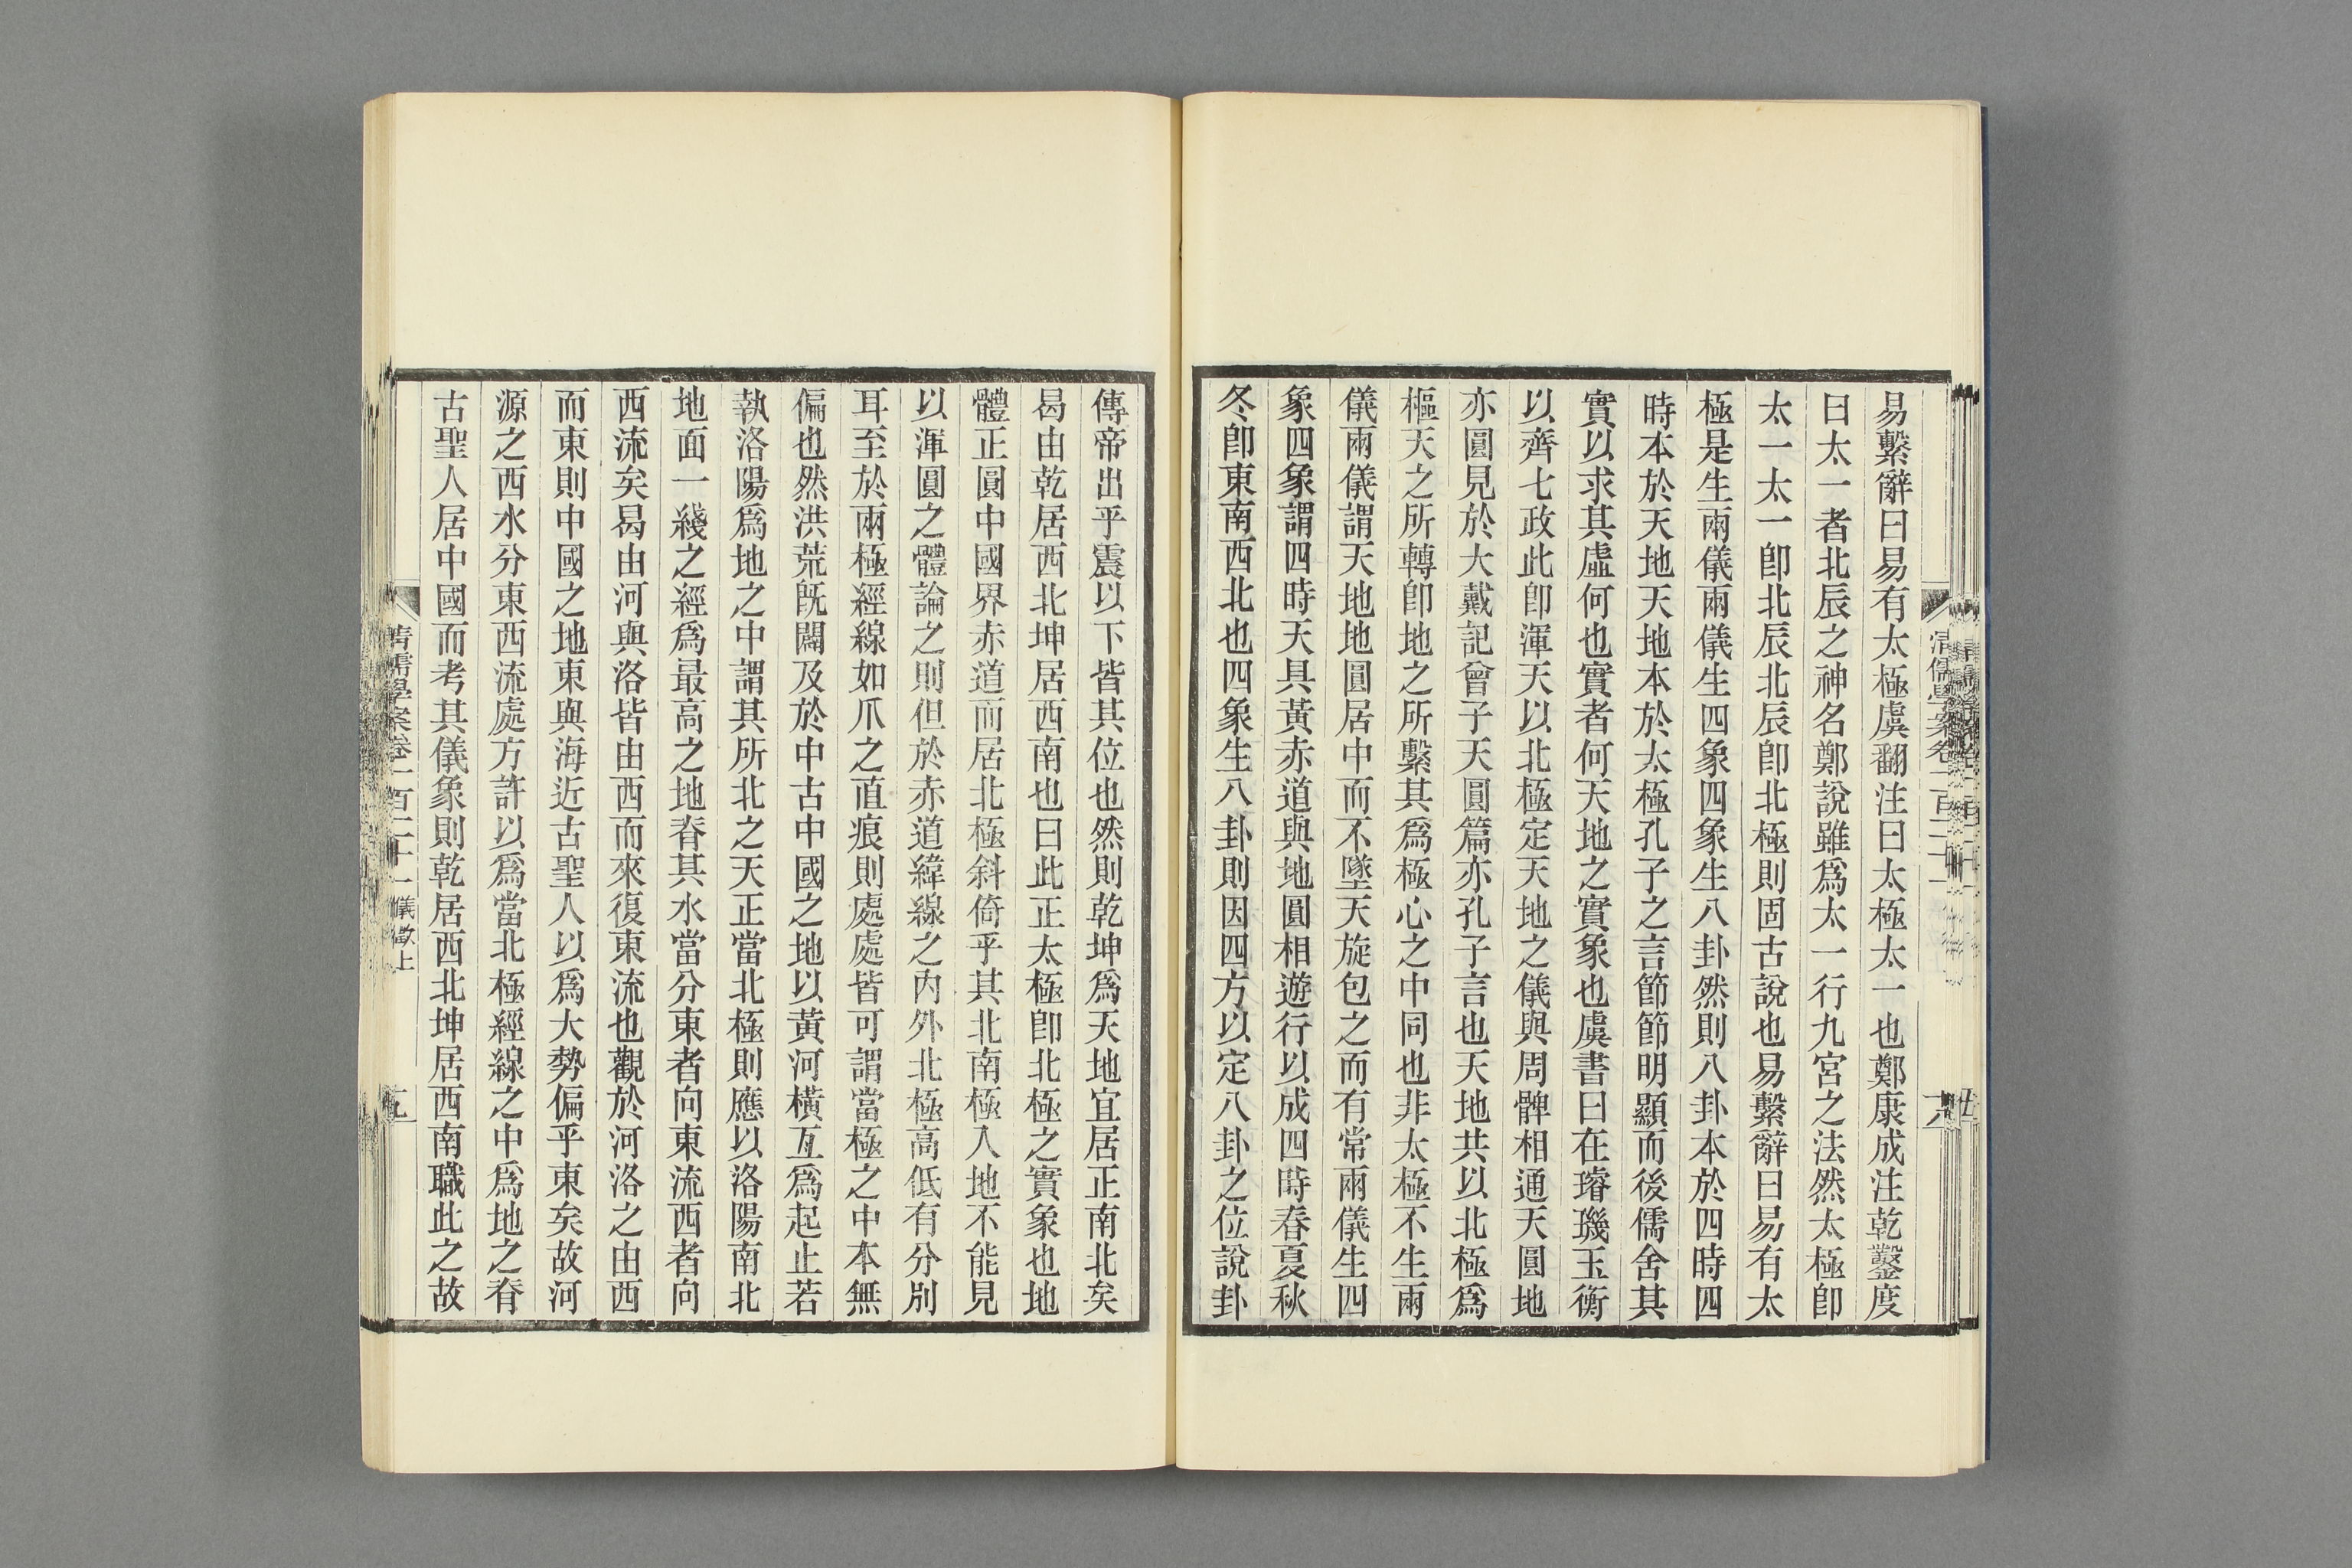 易繫辭曰易有太極虞翻注曰太極太一也鄭康成注乾鑿度
曰太一者北辰之神名鄭說雖爲太一行九宮之法然太極卽
太一太一卽北辰北辰卽北極則固古說也易繫辭曰易有太
極是生兩儀兩儀生四象四象生八卦然則八卦本於四時四
時本於天地天地本於太極孔子之言節節明顯而後儒舍其
實以求其虛何也實者何天地之實象也虞書曰在璿璣玉衡
以齊七政此卽渾天以北極定天地之儀與周髀相通天圓地
亦圓見於大戴記曾子天圓篇亦孔子言也天地共以北極爲
樞天之所轉卽地之所繫其爲極心之中同也非太極不生兩
儀兩儀謂天地地圓居中而不墜天旋包之而有常兩儀生四
象四象謂四時天具黃赤道與地圓相遊行以成四時春夏秋
冬卽東南西北也四象生八卦則因四方以定八卦之位說卦
傳帝出乎震以下皆其位也然則乾坤爲天地宜居正南北矣
曷由乾居西北坤居西南也曰此正太極卽北極之實象也地
體正圓中國界赤道而居北極斜倚乎其北南極入地不能見
以渾圓之體論之則但於赤道緯線之內外北極高低有分別
耳至於兩極經線如爪之直痕則處處皆可謂當極之中本無
偏也然洪荒旣闢及於中古中國之地以黃河橫亙爲起止若
執洛陽爲地之中謂其所北之天正當北極則應以洛陽南北
地面一綫之經爲最高之地脊其水當分東者向東流西者向
西流矣曷由河與洛皆由西而來復東流也觀於河洛之由西
而東則中國之地東與海近古聖人以爲大勢偏乎東矣故河
源之西水分東西流處方許以爲當北極經線之中爲地之脊
古聖人居中國而考其儀象則乾居西北坤居西南職此之故
清儒學案卷一百二十一儀徵上